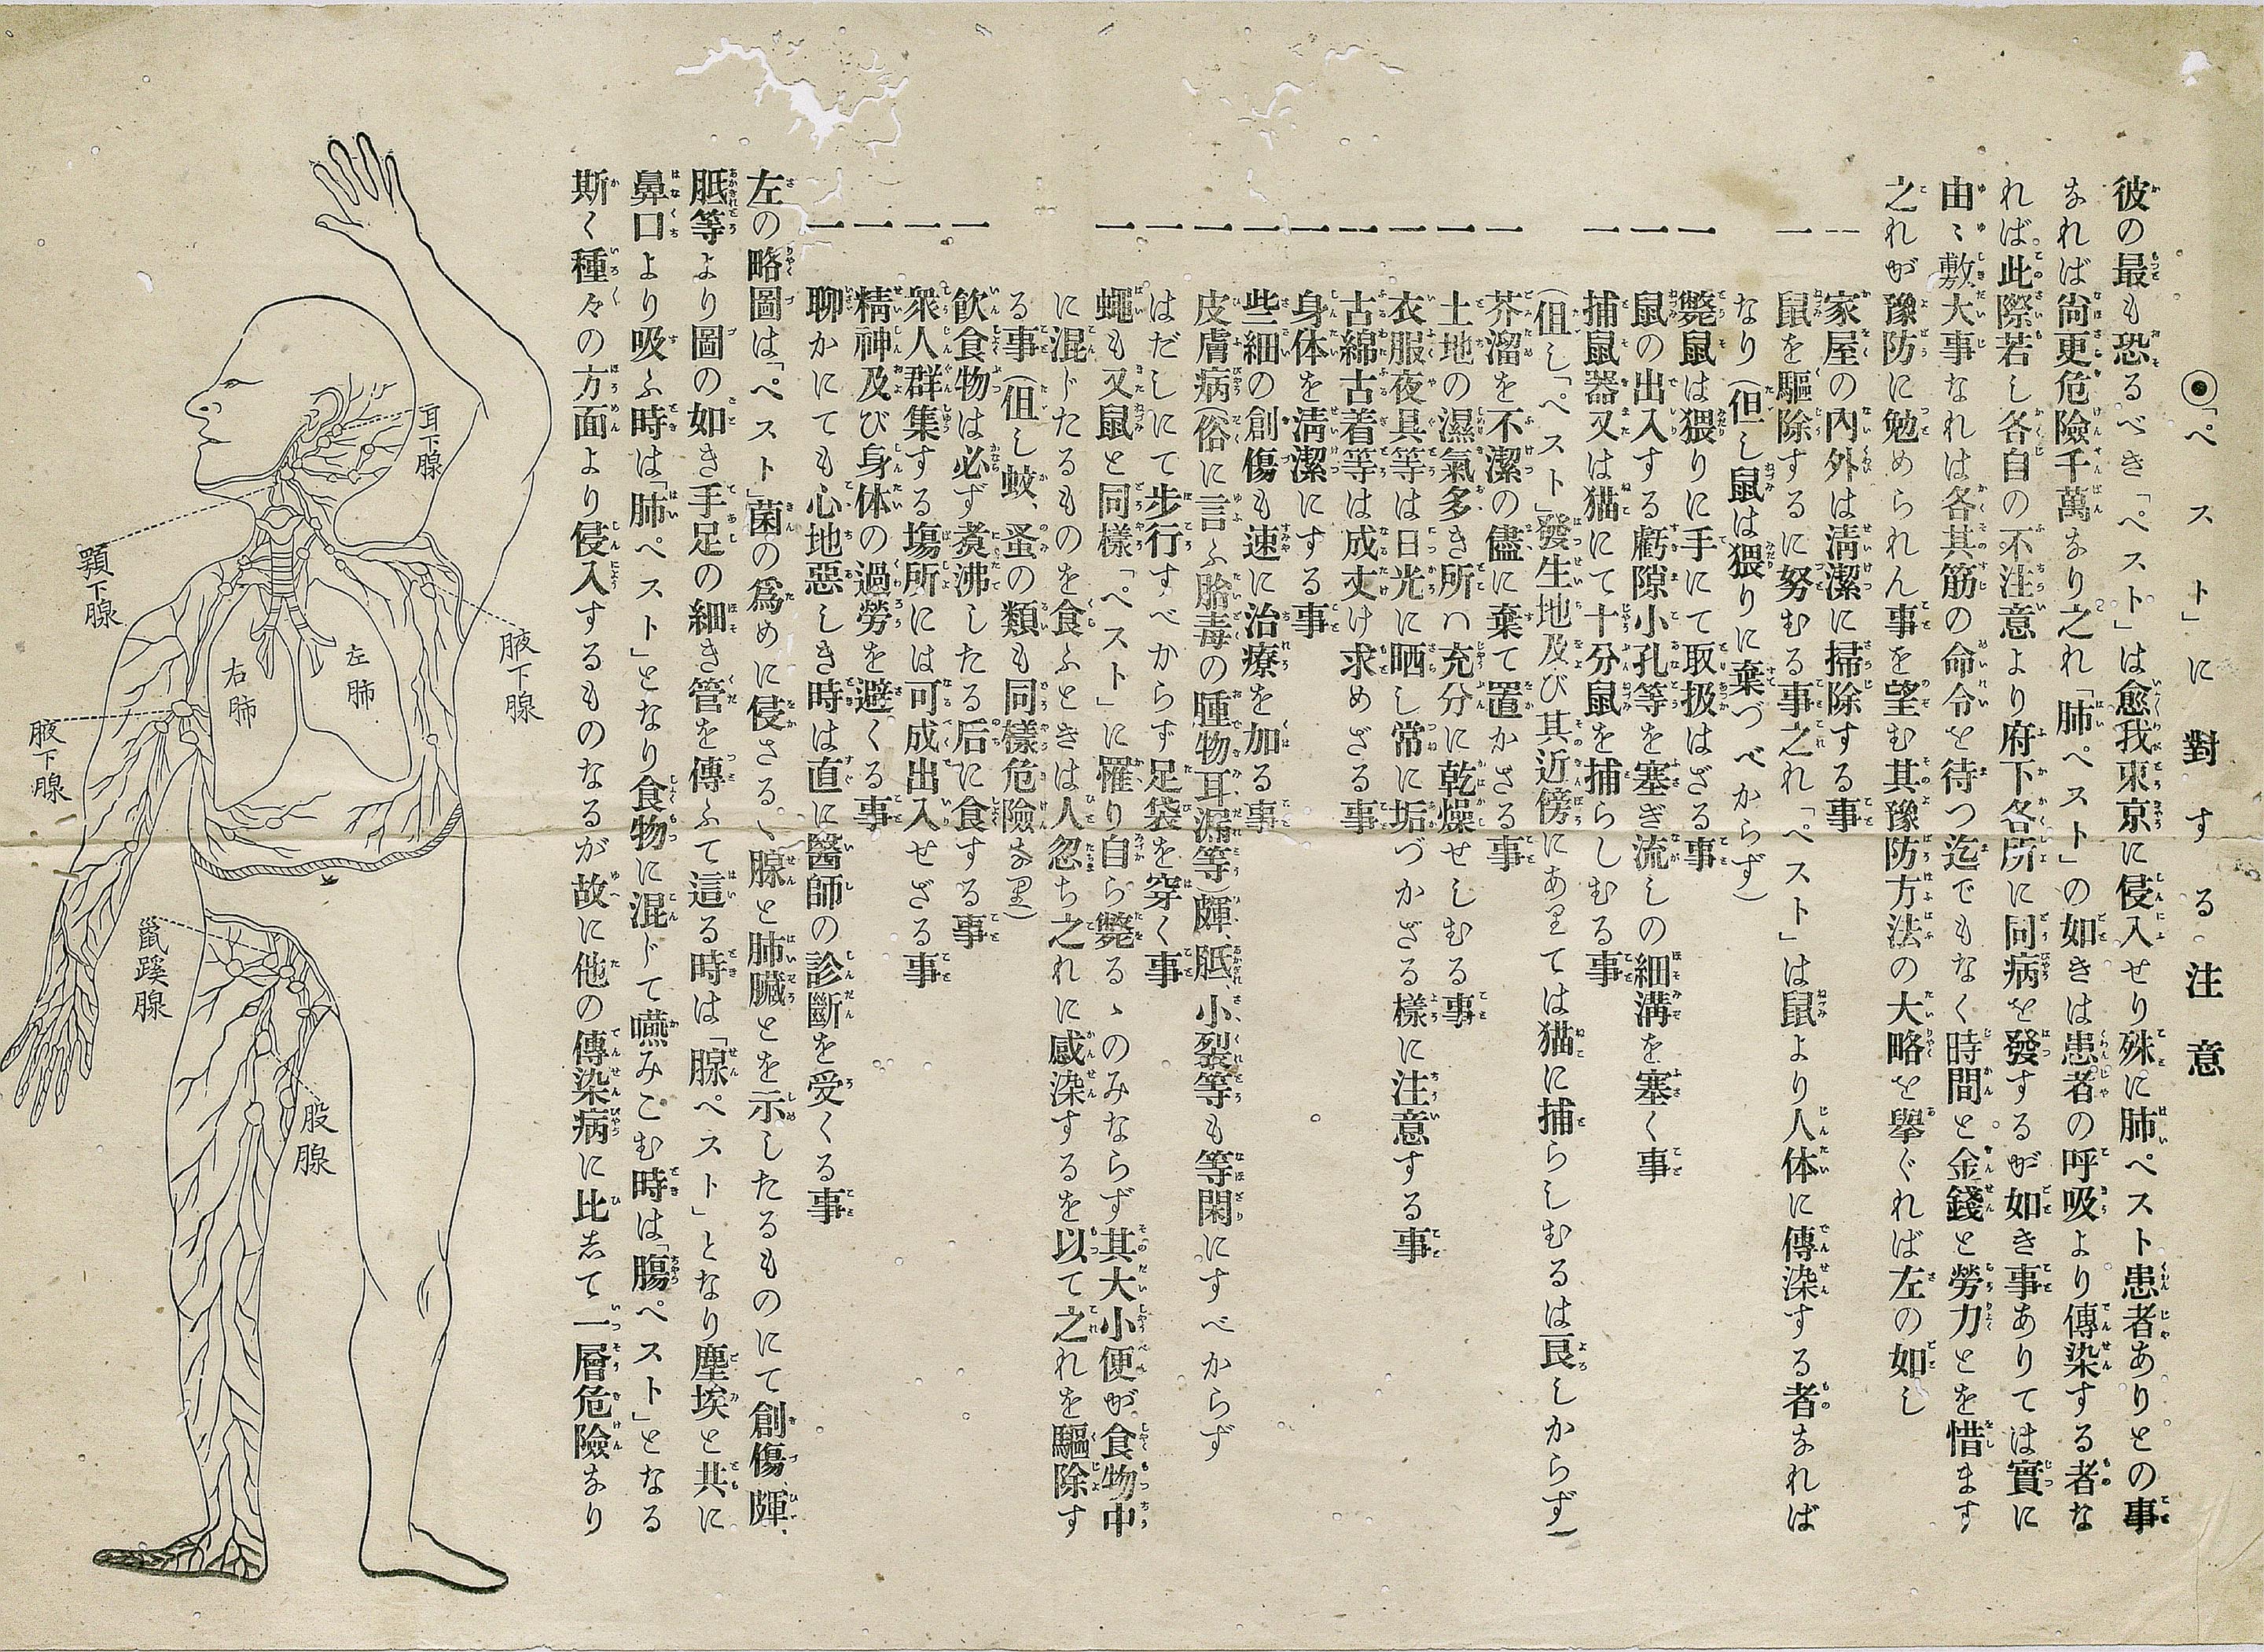 ◉「ペスト」に對する注意
彼の最も恐るべき「ペスト」は愈我東京に侵入せり殊に肺ペスト患者ありとの事
なれば尙更危險千萬なり之れ「肺ペスト」の如きは患者の呼吸より傳染する者な
れば此際若し各自の不注意より府下各所に同病を發するが如き事ありては實に
由ゝ敷大事なれは各其筋の命令を待つ迄でもなく時間と金錢と勞力とを惜ます
之れが豫防に勉められん事を望む其豫防方法の大略を擧ぐれば左の如し
一 家屋の內外は淸潔に掃除する事
一 鼠を驅除するに努むる事之れ「ペスト」は鼠より人体に傳染する者なれば
なり（但し鼠は猥りに棄つべからず）
一 斃鼠は猥りに手にて取扱はざる事
一 鼠の出入する虧隙小孔等を塞ぎ流しの細溝を塞く事
一 捕鼠器又は猫にて十分鼠を捕らしむる事
（但し「ペスト」發生地及び其近傍にありては猫に捕らしむるは良しからず）
一 芥溜を不潔の儘に棄て置かざる事
一 土地の濕氣多き所ハ充分に乾燥せしむる事
一 衣服夜具等は日光に晒し常に垢づかざる樣に注意する事
一 古綿古着等は成丈け求めざる事
一 身体を淸潔にする事
一 些細の創傷も速に治療を加る事
一 皮膚病（俗に言ふ胎毒の腫物耳漏等）皹、胝、小裂等も等閑にすべからず
一 はだしにて步行すべからず足袋を穿く事
一 蠅も又鼠と同樣「ペスト」に罹り自ら斃るゝのみならず其大小便が食物中
に混じたるものを食ふときは人忽ち之れに感染するを以て之れを驅除す
る事（但し蚊、蚤の類も同樣危險なり）
一 飮食物は必ず煑沸したる后に食する事
一 衆人群集する塲所には可成出入せざる事
一 精神及び身体の過勞を避くる事
一 聊かにても心地惡しき時は直に醫師の診斷を受くる事
左の略圖は「ペスト」菌の爲めに侵さるゝ腺と肺臟とを示したるものにて創傷、皹、
胝等より圖の如き手足の細き管を傳ふて這る時は「腺ペスト」となり塵埃と共に
鼻口より吸ふ時は「肺ペスト」となり食物に混じて嚥みこむ時は「腸ペスト」となる
斯く種々の方面より侵入するものなるが故に他の傳染病に比志て一層危險なり
耳下腺
顎下腺
腋下腺
左肺
右肺
腋下腺
鼠蹊腺
股腺